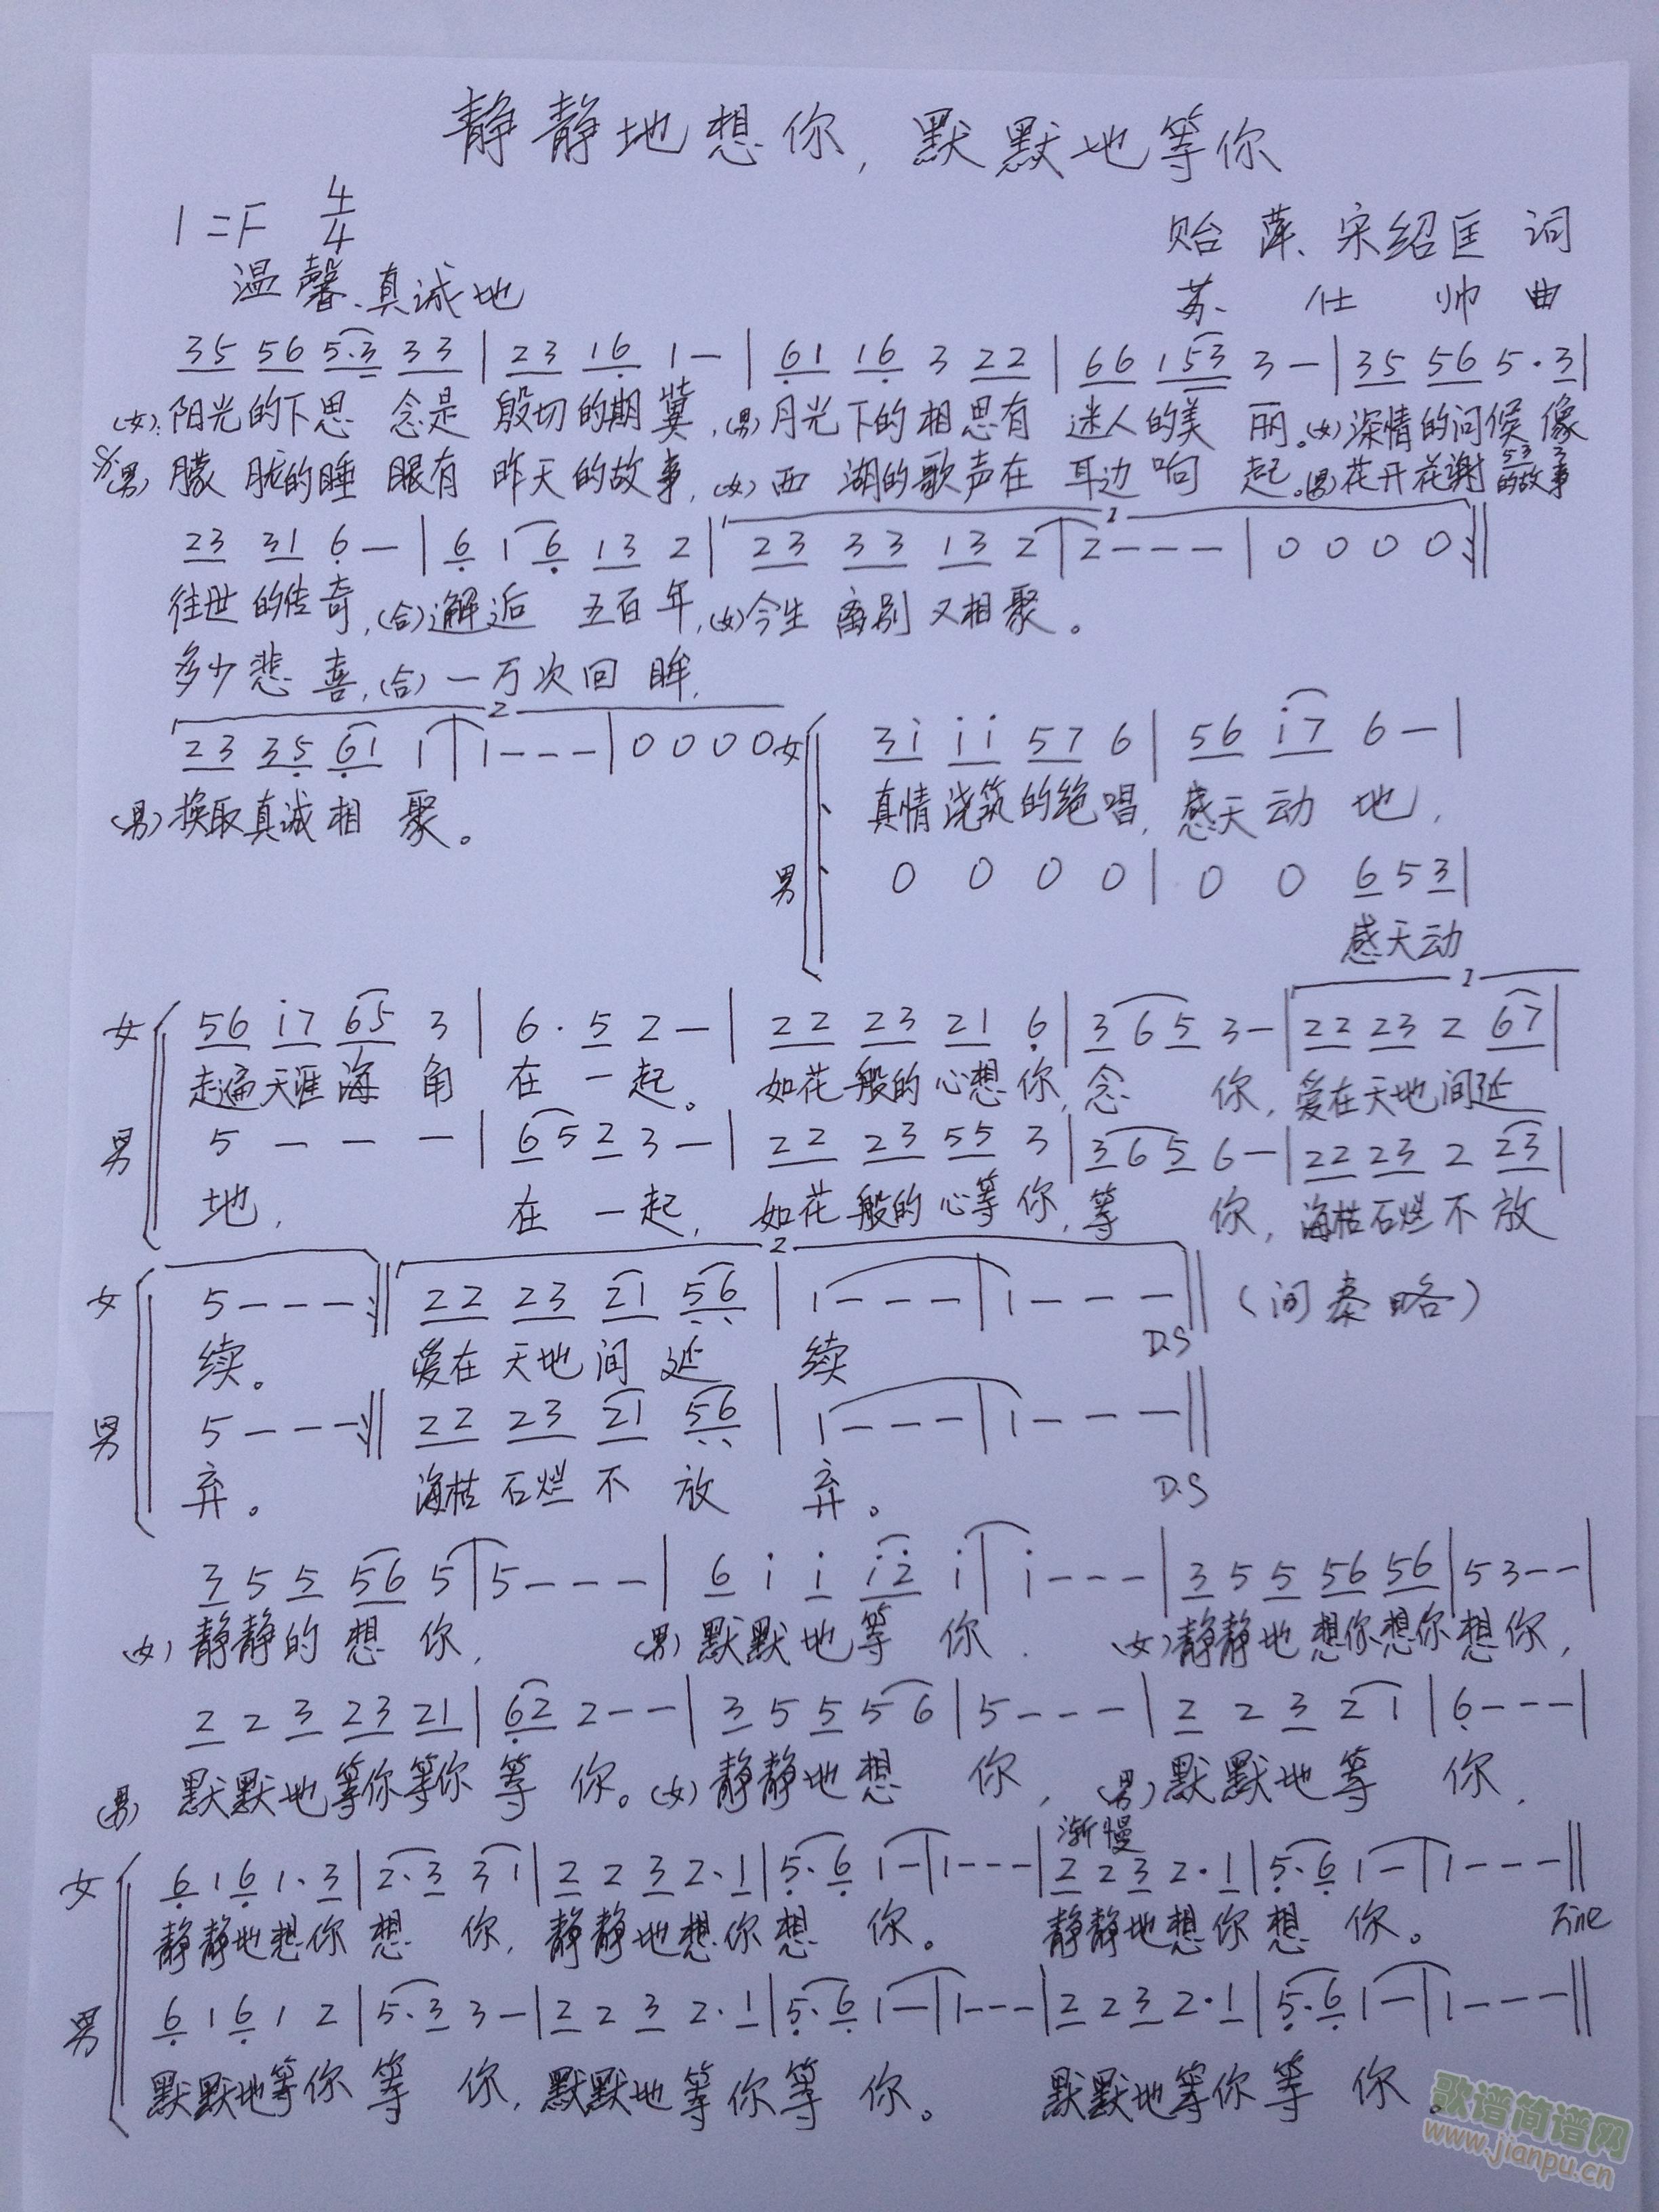 静静地想你，默默地等你
1=F 4/4
贻萍、宋绍匡 词
温馨、真诚地
苏仕帅 曲
35 56 5·3 33 | 23 16 1 — | 61 16 3 22 | 66 153 3 — | 35 56 5·3 |
(女):阳光的下思念是殷切的期冀，(男)月光下的相思有迷人的美丽。(女)深情的问候像
(男)朦胧的睡眼有昨天的故事，(女)西湖的歌声在耳边响起。(男)花开花谢的故事
53 3
23 31 6 — | 6 1 6 13 2 | 23 33 13 2 | 2 — — — | 0 0 0 0 :||
往世的传奇，(合)邂逅五百年，(女)今生离别又相聚。
多少悲喜，(合)一万次回眸，
23 35 61 1 | 1 — — — | 0 0 0 0
(男)换取真诚相聚。
女 3i ii 57 6 | 56 i7 6 — |
真情浇筑的绝唱，感天动地，
男 0 0 0 0 | 0 0 653 |
感天动
女 56 i7 65 3 | 6· 5 2 — | 22 23 21 6 | 365 3 — | 22 23 2 67 |
走遍天涯海角在一起。如花般的心想你，念你，爱在天地间延
男 5 — — — | 652 3 — | 22 23 55 3 | 365 6 — | 22 23 2 23 |
地，在一起，如花般的心等你，等你，海枯石烂不放
女 5 — — — :|| 22 23 21 56 | 1 — — — | 1 — — — || (间奏略)
续。爱在天地间延续 D.S
男 5 — — — :|| 22 23 21 56 | 1 — — — | 1 — — — ||
弃。海枯石烂不放弃。 D.S
3 5 5 56 5 | 5 — — — | 6 i i i2 i | i — — — | 3 5 5 56 56 | 5 3 — — |
(女)静静的想你，(男)默默地等你. (女)静静地想你想你想你，
2 2 3 23 21 | 62 2 — — | 3 5 5 5 6 | 5 — — — | 2 2 3 2 1 | 6 — — — |
(男)默默地等你等你等你。(女)静静地想你，(男)默默地等你，
渐慢
女 6 1 6 1·3 | 2·3 3 1 | 2 2 3 2·1 | 5·6 1 — | 1 — — — | 2 2 3 2·1 | 5·6 1 — | 1 — — — ||
静静地想你想你，静静地想你想你。静静地想你想你。 Fine
男 6 1 6 1 2 | 5·3 3 — | 2 2 3 2·1 | 5·6 1 — | 1 — — — | 2 2 3 2·1 | 5·6 1 — | 1 — — — ||
默默地等你等你，默默地等你等你。默默地等你等你。
歌谱简谱网
www.jianpu.cn